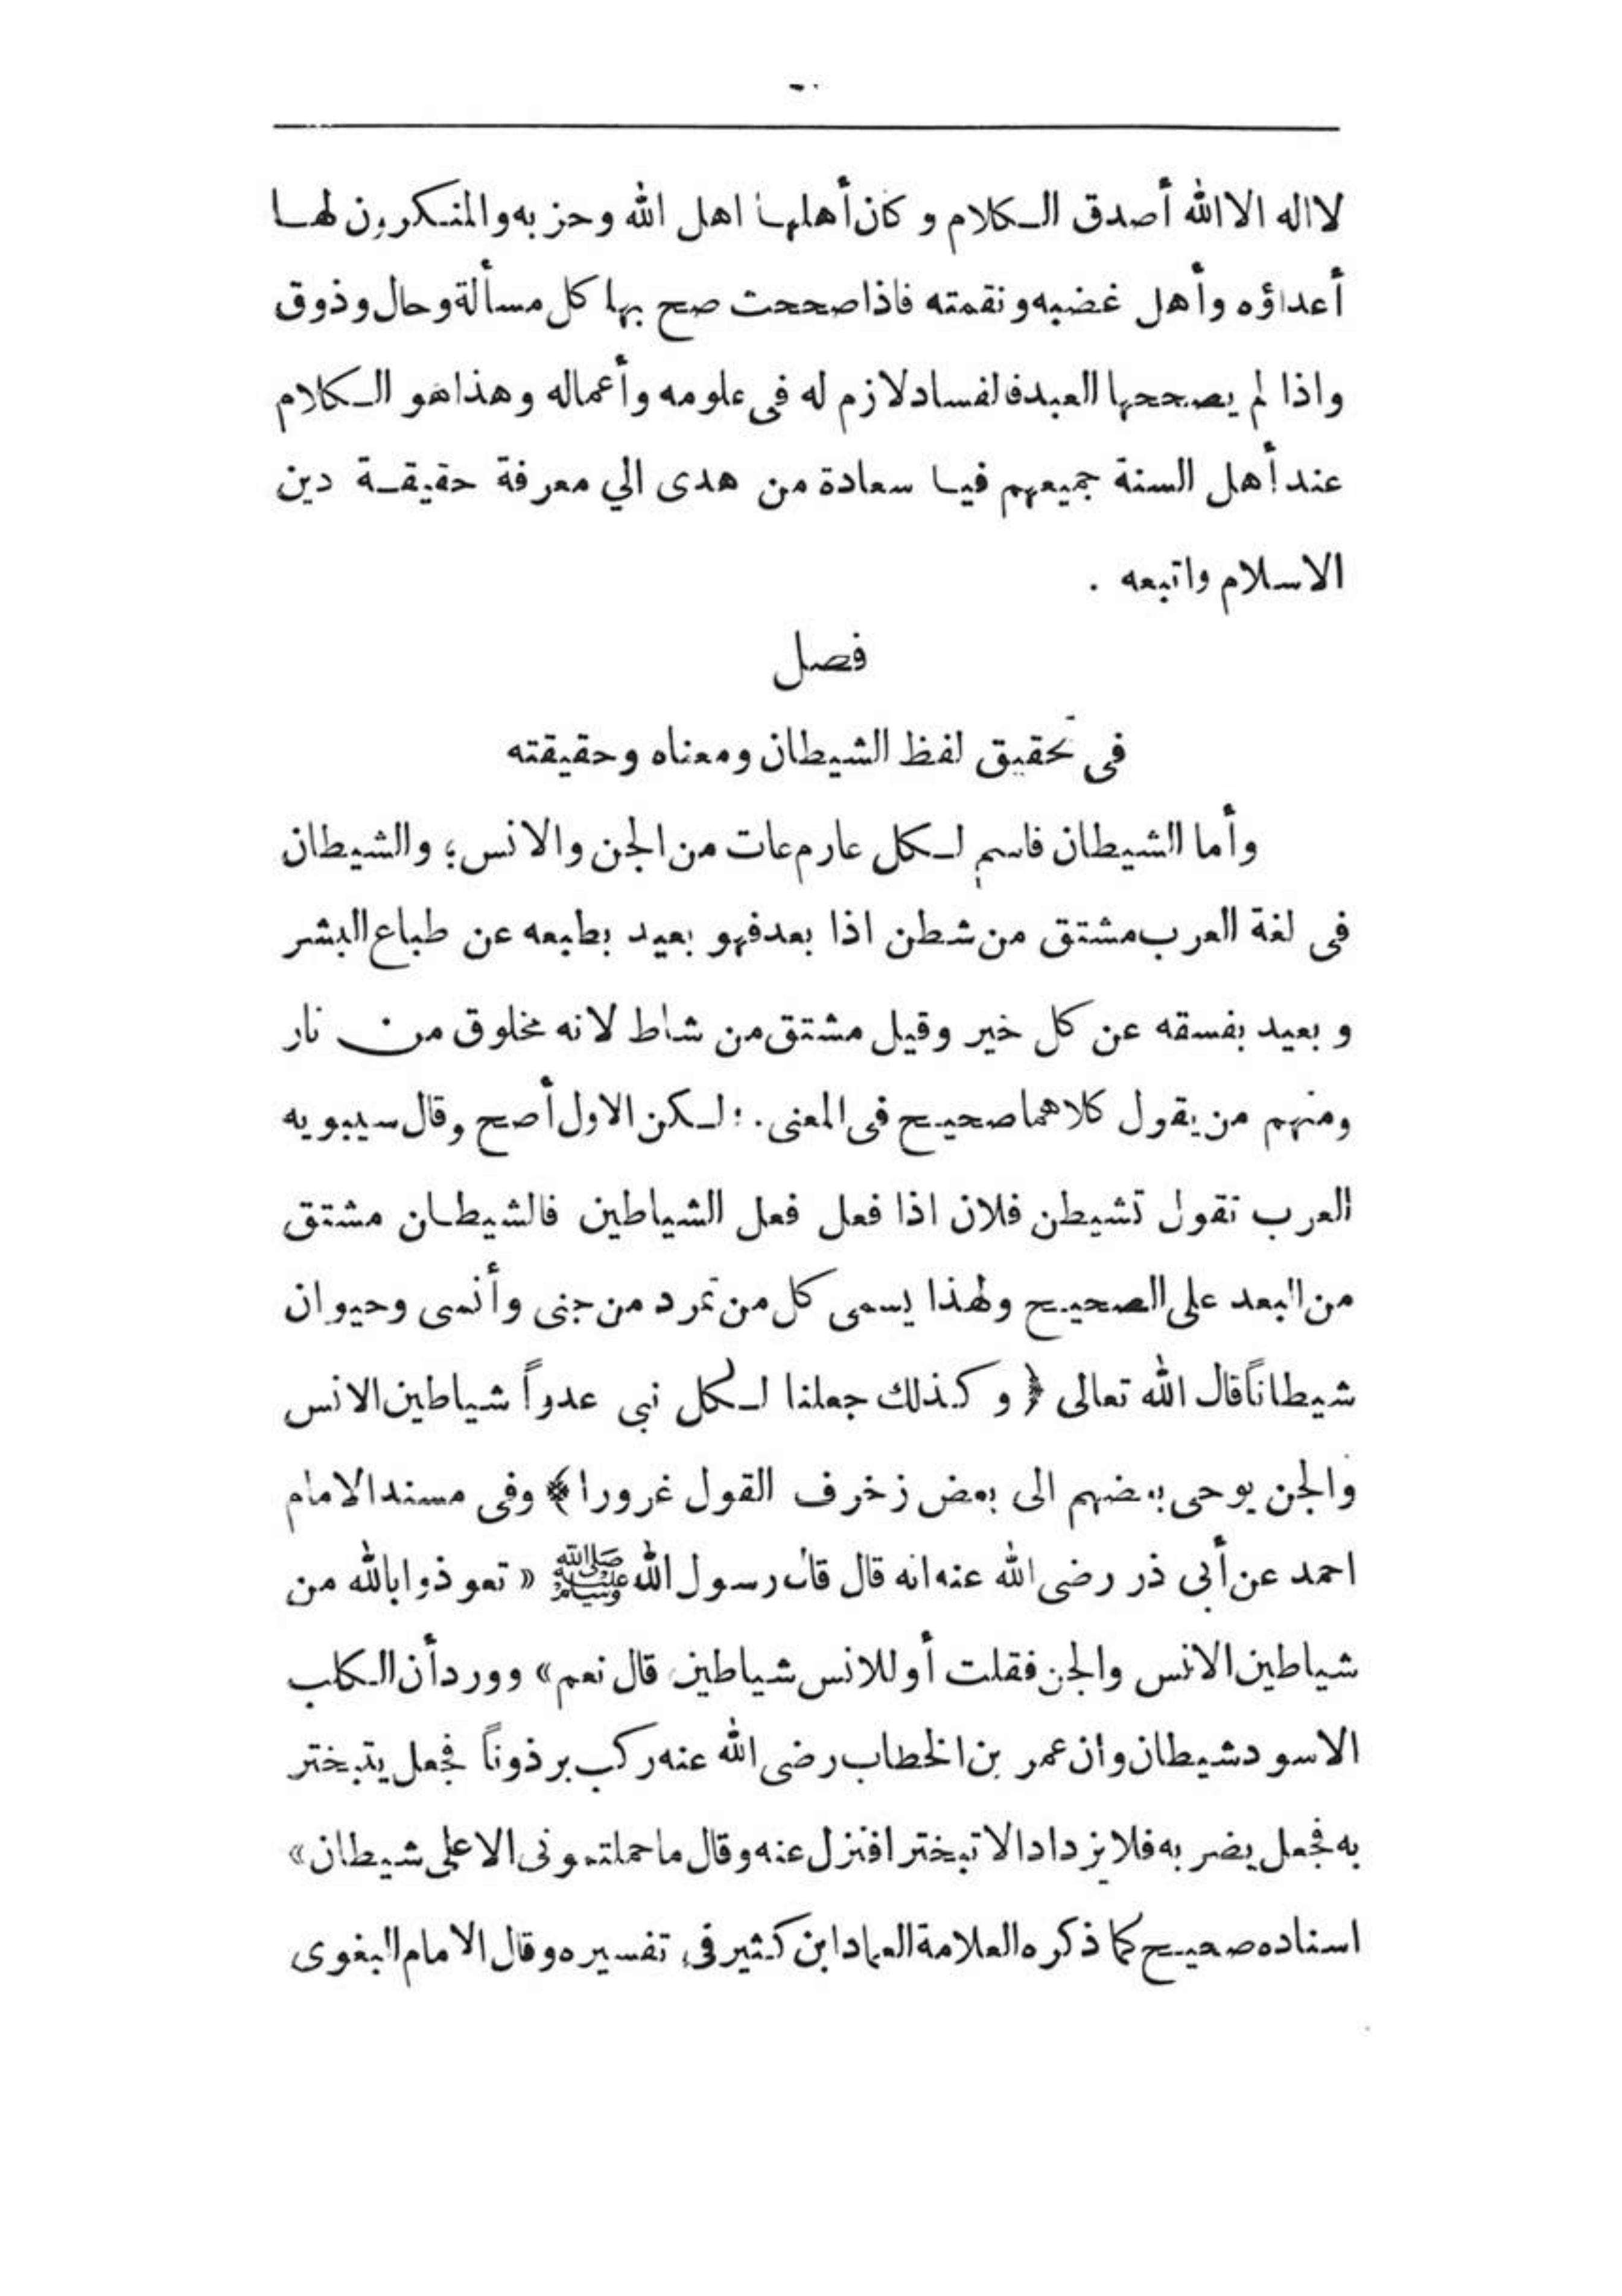 لااله الاالله أصدق الـكلام وكان أهلها اهل الله وحزبه والمنـكرون لهـا
أعداؤه وأهل غضبه ونقمته فاذا صححت صح بها كل مسألة وحال وذوق
واذا لم يصححها العبد فالفساد لازم له فى علومه وأعماله وهذا هو الـكلام
عند أهل السنة جميعهم فيـا سعادة من هدى الي معرفة حقيقـة دين
الاسلام واتبعه .
فصل
فى تحقيق لفظ الشيطان ومعناه وحقيقته
وأما الشيطان فاسم لـكل عارم عات من الجن والانس؛ والشيطان
فى لغة العرب مشتق من شطن اذا بعد فهو بعيد بطبعه عن طباع البشر
وبعيد بفسقه عن كل خير وقيل مشتق من شاط لانه مخلوق من نار
ومنهم من يقول كلاهما صحيح فى المعنى. ؛ لـكن الاول أصح وقال سيبويه
العرب تقول تشيطن فلان اذا فعل فعل الشياطين فالشيطـان مشتق
من البعد على الصحيح ولهذا يسمى كل من تمرد من جنى وأنسى وحيوان
شيطاناً قال الله تعالى ﴿ وكذلك جعلنا لـكل نبى عدواً شياطين الانس
والجن يوحى بعضهم الى بعض زخرف القول غرورا ﴾ وفى مسند الامام
احمد عن أبى ذر رضى الله عنه انه قال قال رسول الله ﷺ « تعوذوا بالله من
شياطين الانس والجن فقلت أو للانس شياطين قال نعم » وورد أن الـكلب
الاسود شيطان وأن عمر بن الخطاب رضى الله عنه ركب برذوناً فجعل يتبختر
به فجعل يضربه فلا يزداد الا تبخترا فنزل عنه وقال ما حملتمونى الا على شيطان »
اسناده صحيح كما ذكره العلامة العماد ابن كثير فى تفسيره وقال الامام البغوى